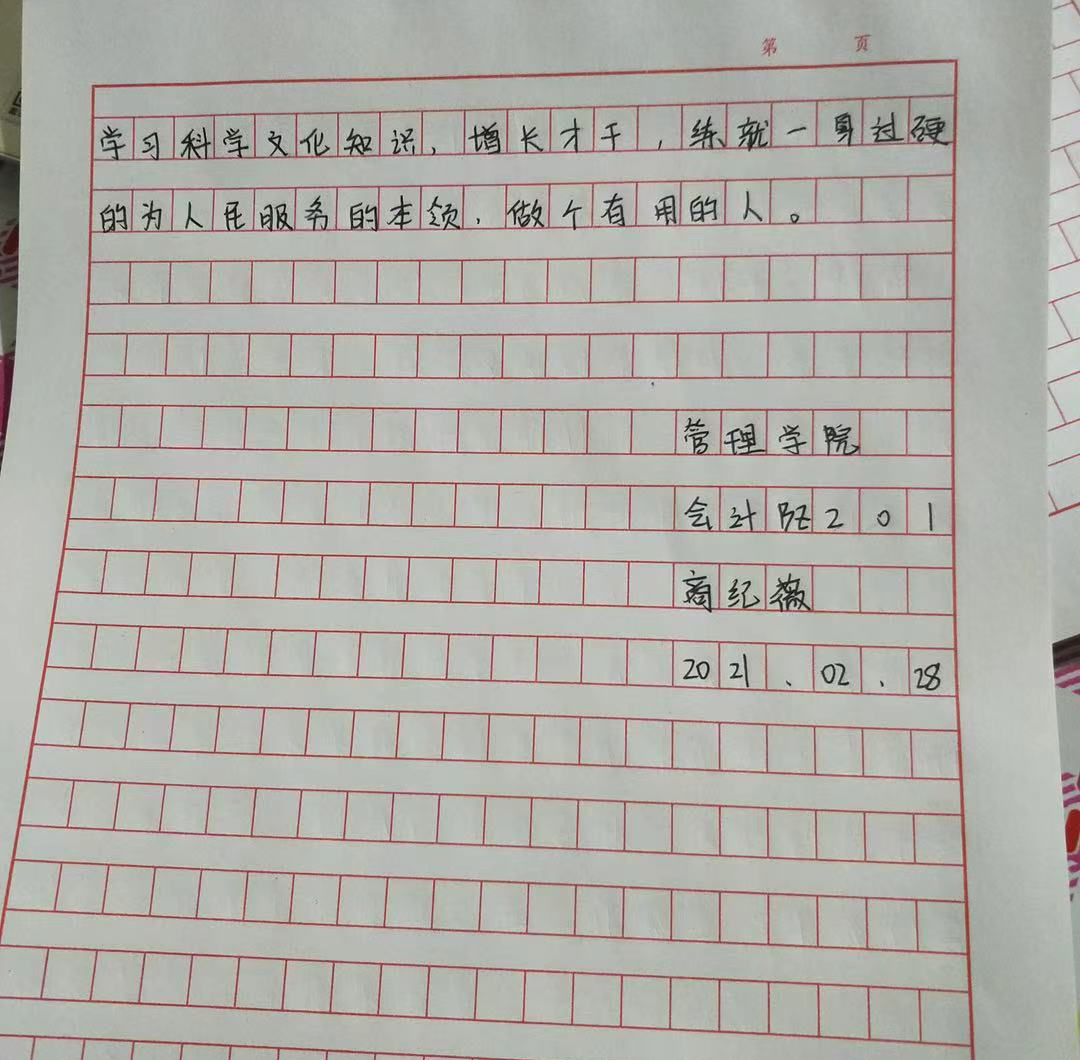 第 页
学习科学文化知识，增长才干，练就一身过硬
的为人民服务的本领，做个有用的人。
管理学院
会计BZ201
商纪薇
2021.02.28